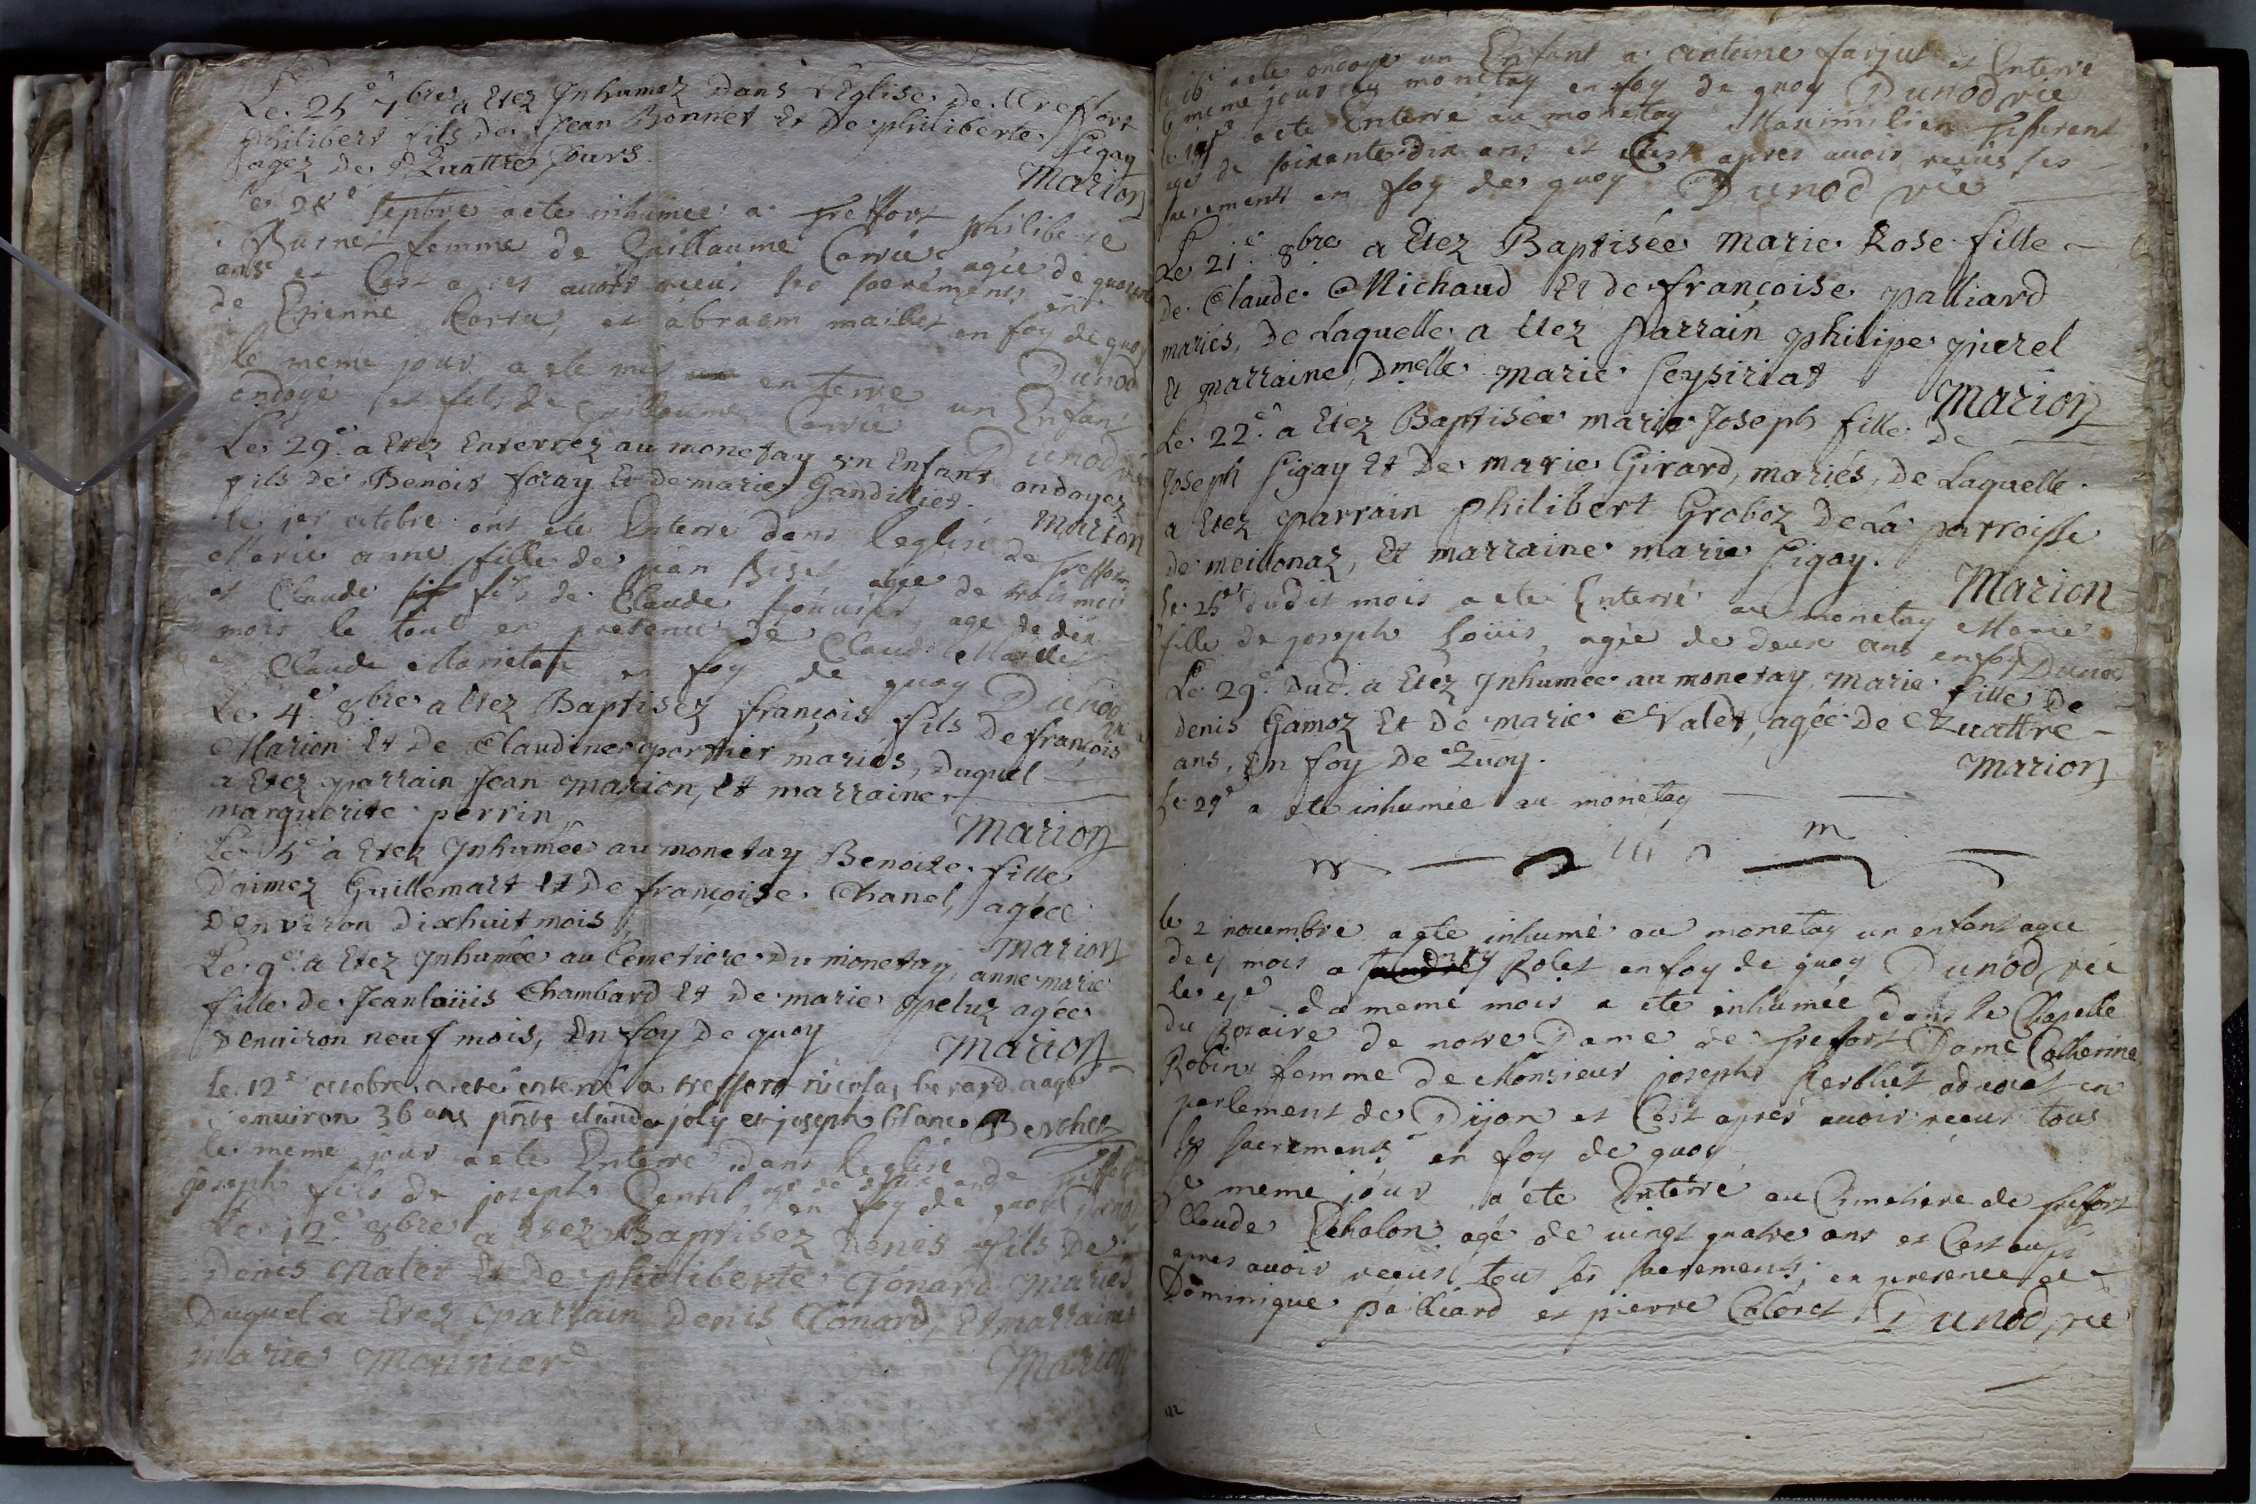 Le 25e 7bre a Etez Inhumez Dans L'Eglise De Treffort
philibert fils de Jean Bonnet Et De philiberte Pigay
agez De Quattre Jours.
Marion
Le 28e septbre a ete inhumée a treffort philiberte
Burnet femme de Guillaume Carrié agée de quarante
ans et Cest apres auoir receus les sacrements en
de Etienne et abraam maillet en foy de quoy
Dunod
le meme jour a ete mis en terre un Enfant
endoyé et fils de guillaume Carrié
Dunod vic
Le 29e a Etez Enterrez au monetay un Enfant ondoyez
fils de Benoit foray Et de marie Gandillet.
Marion
le 1er octobre ont ete Enterré dans leglise de treffort
Marie anne fille de jean Biset agée de trois mois
et Claude fils de Claude bouuier age de dix
mois le tout en presence de Claude Maillet
et Claude Marietan en foy de quoy Dunod
Le 4e 8bre a Etez Baptisez françois fils De françois
Marion Et De Claudine portier mariés, Duquel
a Etez parrain Jean marion, Et marraine
marguerite perrin
Marion
Le 5e a Etez Inhumée au monetay Benoite fille
D'aimez Guillemart Et De françoise Chanel, agée
D'environ Dixhuit mois
Marion
Le 9e a Etez Inhumée au Cemetiere Du monetay, anne marie
fille de Jeanloüis Chambard Et De marie peluz agée
D'enuiron neuf mois, En foy De quoy
Marion
le 12e octobre a ete enterré a treffort nicolas berard aagé
enuiron 36 ans pnts claude joly et joseph blanc Berchet
le meme jour a ete Enterré dans leglise de treffort
joseph fils de joseph Gentil, agé de deux ans en foy de quoy Dunod
Le 12e 8bre a Etez Baptisez Denis fils De
Denis Nalet Et De philiberte Gonard Mariés
Duquel a Etez parrain Denis Gonard, Et marraine
marie Monnier
Marion
le 16e a ete ondoyé un Enfant a antoine farjut et Enterré
le meme jour au monetay en foy de quoy Dunod vic
le 19e a ete Enterré au monetay Maximilien
agé de soixante dix ans et Cest apres auoir receus ses
sacrements en foy de quoy Dunod vic
Le 21e 8bre a Etez Baptisée Marie Rose fille
De Claude Michaud Et de françoise palliard
mariés, De Laquelle a Etez Parrain philipe pierel
Et marraine, Dmelle marie Ceysiriat
Marion
Le 22e a Etez Baptisée marie Joseph fille de
Joseph Pigay Et De marie Girard, mariés, De Laquelle
a Etez parrain philibert Groboz De La parroisse
de meillonaz, Et marraine marie Pigay.
Marion
Le 25e dudit mois a ete Enterré au monetay Marie
fille de joseph Loüis, agée de deux ans en foy Dunod
Le 29e Dud. a Etez Inhumée au monetay, marie fille De
denis Gamoz Et De marie Nalet, agée De Quattre
ans, En foy De Quoy.
Marion
Le 29e a ete inhumée au monetay
m
le 2 nouembre a ete inhumé au monetay un enfant agée
de 4 mois a Rolet en foy de quoy Dunod vic
le 4e du meme mois a ete inhumée dans la Chapelle
du Rosaire de notre Dame de treffort Dame Catherine
Robin femme de Monsieur joseph Perbluet aduocat en
parlement de Dijon et Cest aprés auoir receus tous
les sacrements en foy de quoy
Le meme jour a ete Enterré au Cimetiere de treffort
Claude Echalon agé de vingt quatre ans et Cest aussi
apres auoir receus tous les sacrements, en presence de
Dominique Palliard et pierre Coloret. Dunod, vic